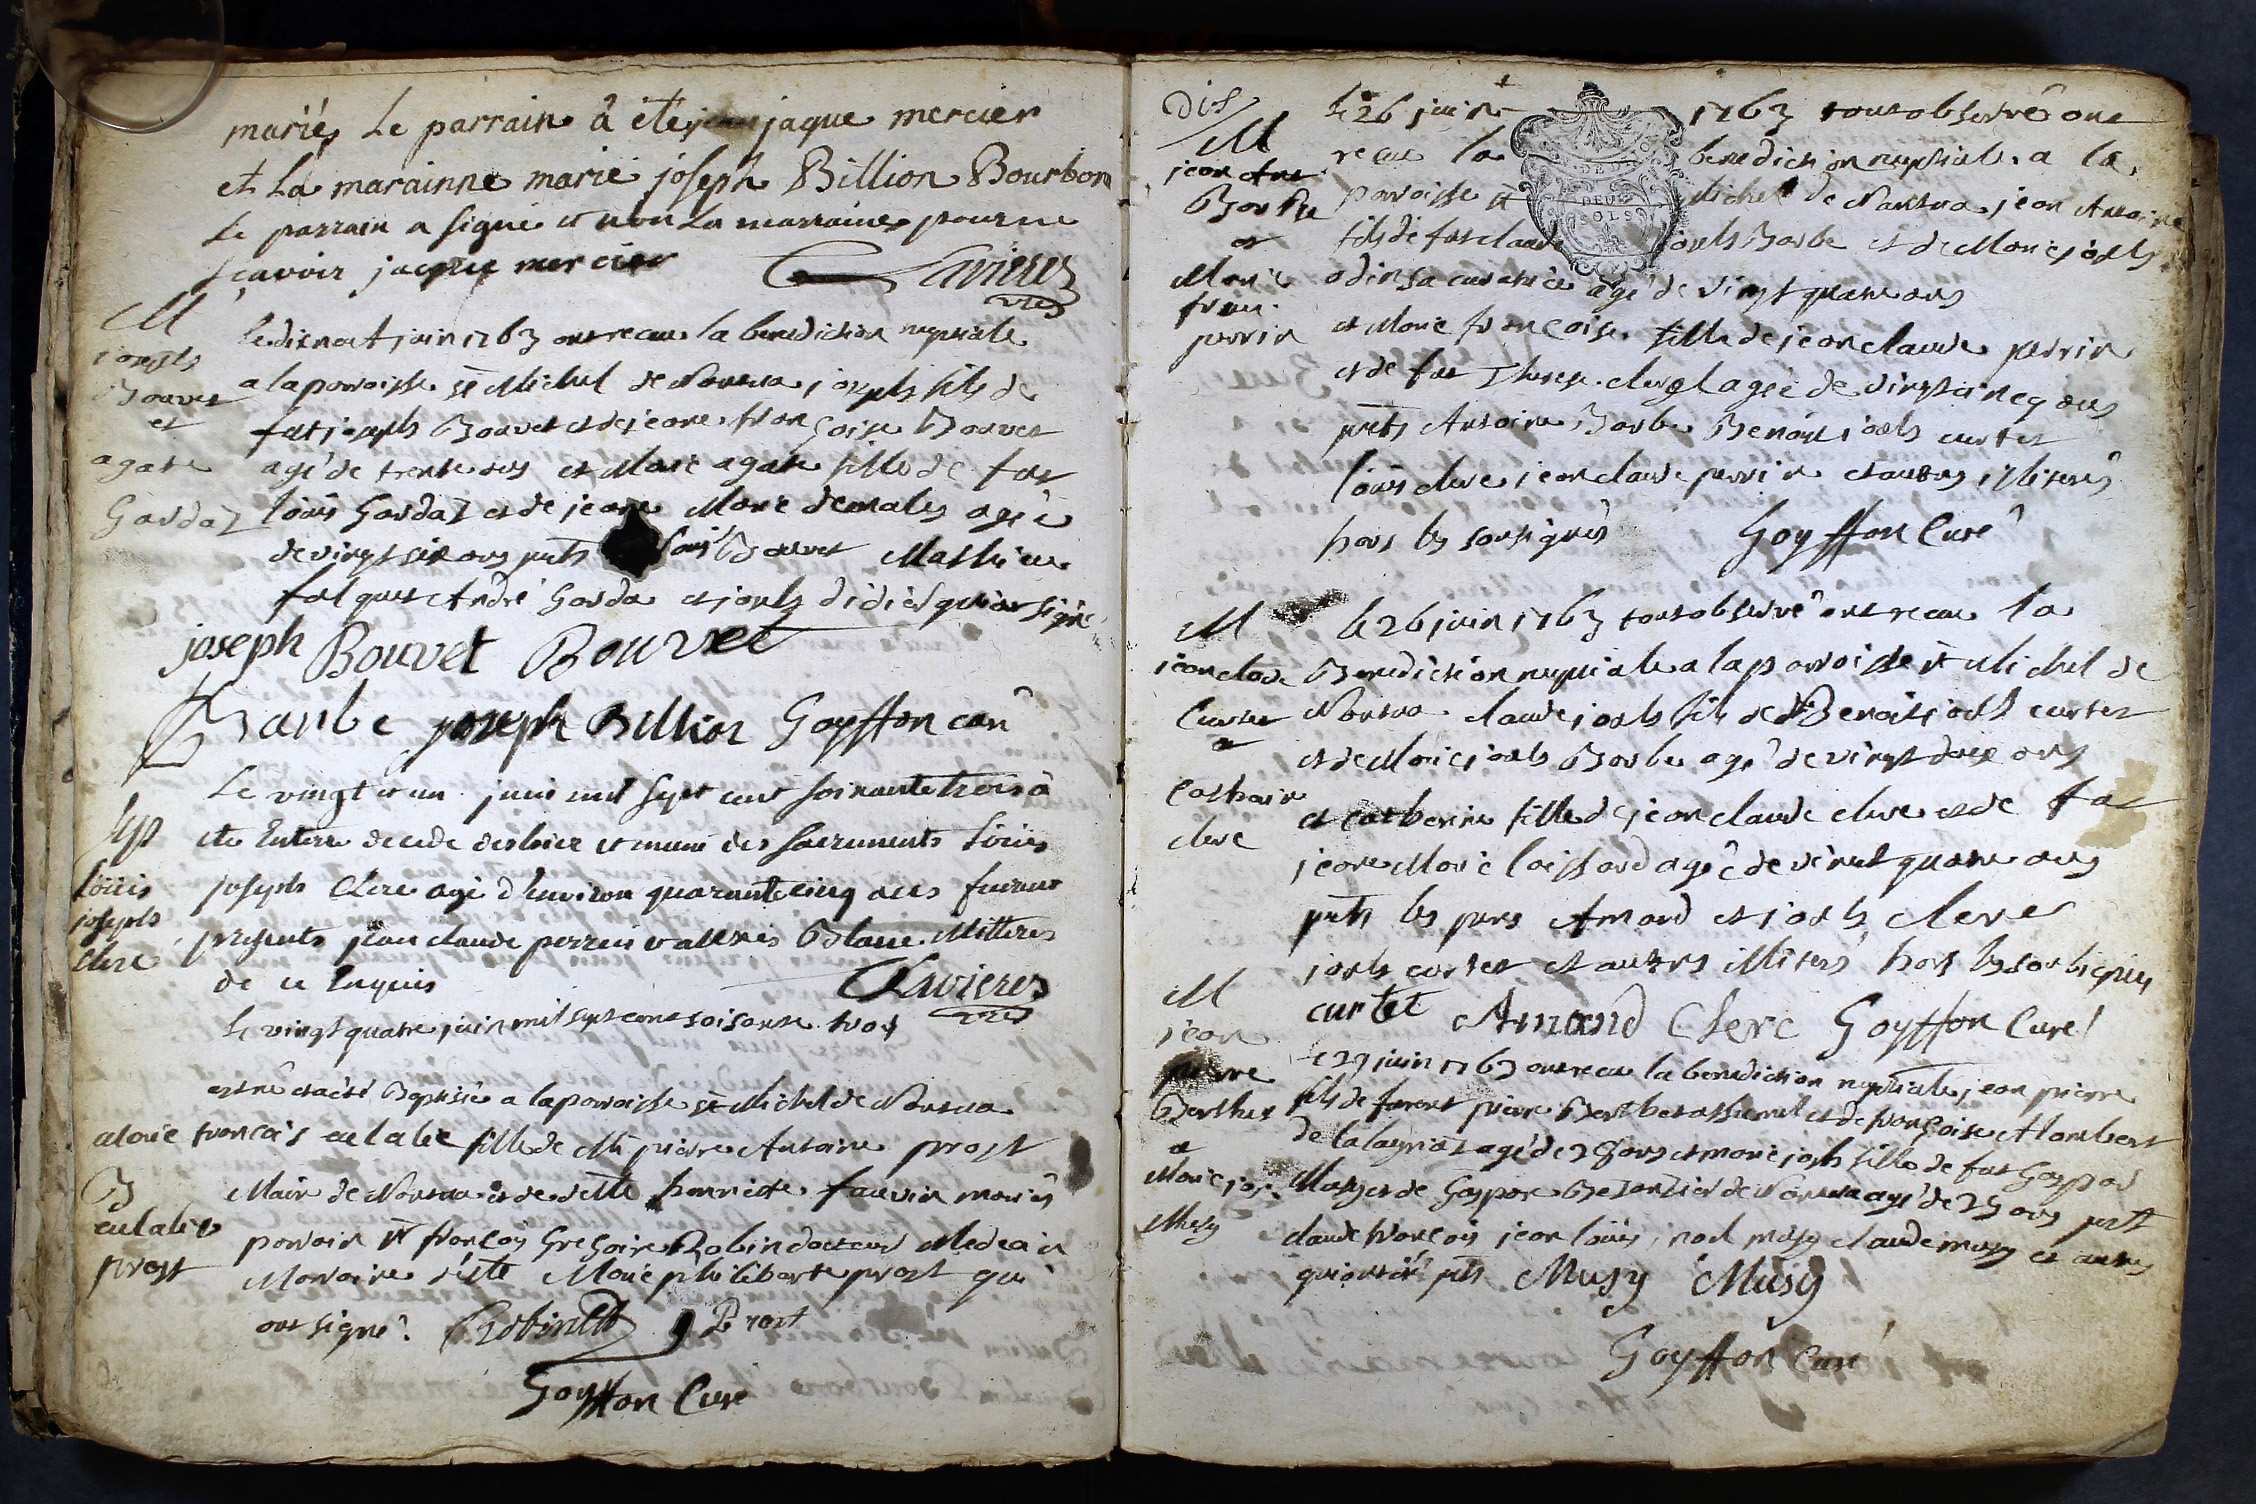 mariés Le parrain â êté jean jaque mercier
et La marainne marie joseph Billion Bourbon
Le parrain a signé et non La marraine pour ne
sçavoir jacque mercier Lavieres
vre
M
joseph
Bouvet
et
agate
Gardaz
le dix neuf juin 1763 ont recu la benediction nuptiale
a la paroisse st Michel de Nantua joseph fils de
fut joseph Bouvet et de jeane françoise Bouvet
agé de trente ans et Marie agate fille de fut
loüis Gardaz et de jeane Marie demales agée
de vingt six ans pnts Bouvet Mathieu
André Garda et joseph didier qui ont signé
joseph Bouvet Bouvet
Barbe joseph Billion Goyffon curé
Sep
Loüis
joseph
Clerc
Le vingt et un juin mil sept cent soixante trois â
ete Enterré decede des hier et muni des sacrements Loüis
joseph Clerc agé d'Environ quarante cinq ans furent
presents jean claude perrin
de ce Enquis Lavieres
vre
Le vingt quatre juin mil sept cent soisante trois
est né et a été Baptisée a la paroisse st Michel de Nantua
Marie françois eulalie fille de Mr pierre Antoine prost
B
eulalie
prost
Maire de Nantua et de dlle henriette fauvin mariés
parrain sr françois Gregoire Robin docteur Medecin
Marraine dlle Marie philiberte prost qui
ont signé Robin Prost
Goyffon Curé
Dis
M
jean Ant
Barbe
et
Marie
fran
perrin
le 26 juin 1763 tout observé ont
recu la benediction nuptiale a la
paroisse st Michel de Nantua jean Antoine
fils de fut claude joseph Barbe et de Marie joseph
odin sa curatrice agé de vingt quatre ans
et Marie françoise fille de jean claude perrin
et de fut Therese agée de vingt cinq ans
pnts Antoine Barbe Benoit joseph curtet
loüis clerc jean claude perrin et autres illiterés
hors les sousignés Goyffon Curé
M
jean claude
Curtet
et
Catharin
clerc
le 26 juin 1763 tout observé ont recu la
Benediction nuptiale a la paroisse st Michel de
Nantua claude joseph fils de Benoit joseph curtet
et de Marie joseph Barbe agé de vingt deux ans
et catherine fille de jean claude clerc et de fut
jeane Marie agée de vint quatre ans
pnts les peres Amand et joseph clerc
joseph curtet et autres illiterés hors les sousignés
curtet Amand Clerc Goyffon Curé
M
jean
pierre
Berthet
et
Marie jos
Musy
le 27 juin 1763 ont recu la benediction nuptiale jean pierre
fils de furent pierre et de françoise Alombert
de agé de ans et marie joseph fille de fut Gaspar
Musy et de de Nantua agé de 25 ans pnts
claude françois jean loüis noel musy claude musy et autres
qui ont pnts Musy Musy
Goyffon Curé